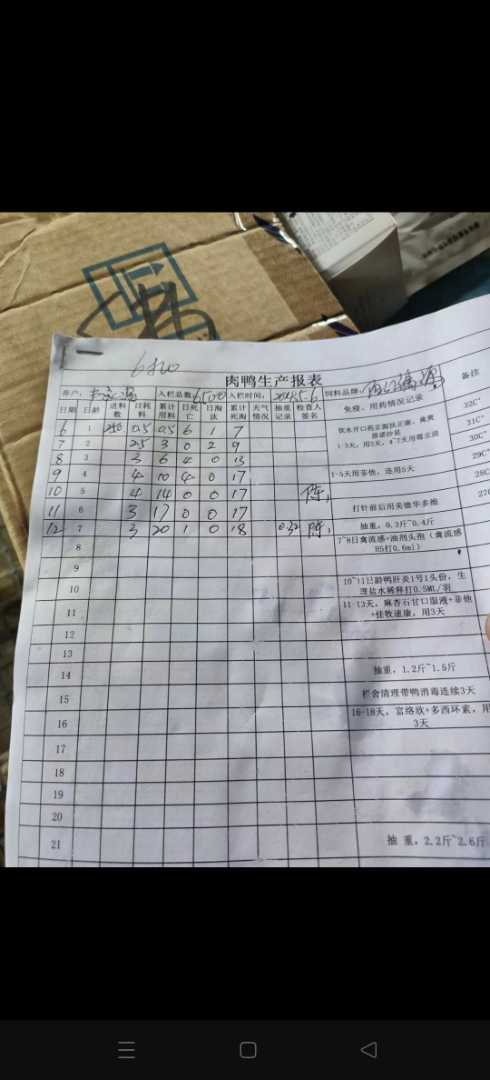 肉鸭生产报表
养户: 入栏总数: 6500 入栏时间: 饲料品牌: 备注
日期 日龄 进料数 日耗料 累计用料 日死亡 日淘汰 累计死淘 天气情况 抽重记录 检查人签名 免疫、用药情况记录
6 1 250 0.5 0.5 6 1 7 32C°
7 2 2.5 3 0 2 9 1-3天, 31C°
8 3 3 6 4 0 13 30C°
9 4 4 10 4 0 17 1-5天用菲他,连用5天 29C°
10 5 4 14 0 0 17 陈 28C
11 6 3 17 0 0 17 打针前后用美德华多维 27
12 7 3 20 1 0 18 0.32 陈 抽重,0.3斤~0.4斤
8 7~8日禽流感+油剂头孢(禽流感H5打0.6ml)
9
10 10~11日龄鸭肝炎1号1头份,生理盐水稀释打0.5ML/羽
11 11-13天,麻杏石甘口服液+菲他+佳牧速康,用3天
12
13
14 抽重,1.2斤~1.5斤
15 栏舍清理带鸭消毒连续3天
16 16-18天,富络欣+多西环素,用3天
17
18
19
20
21 抽 重,2.2斤~2.6斤